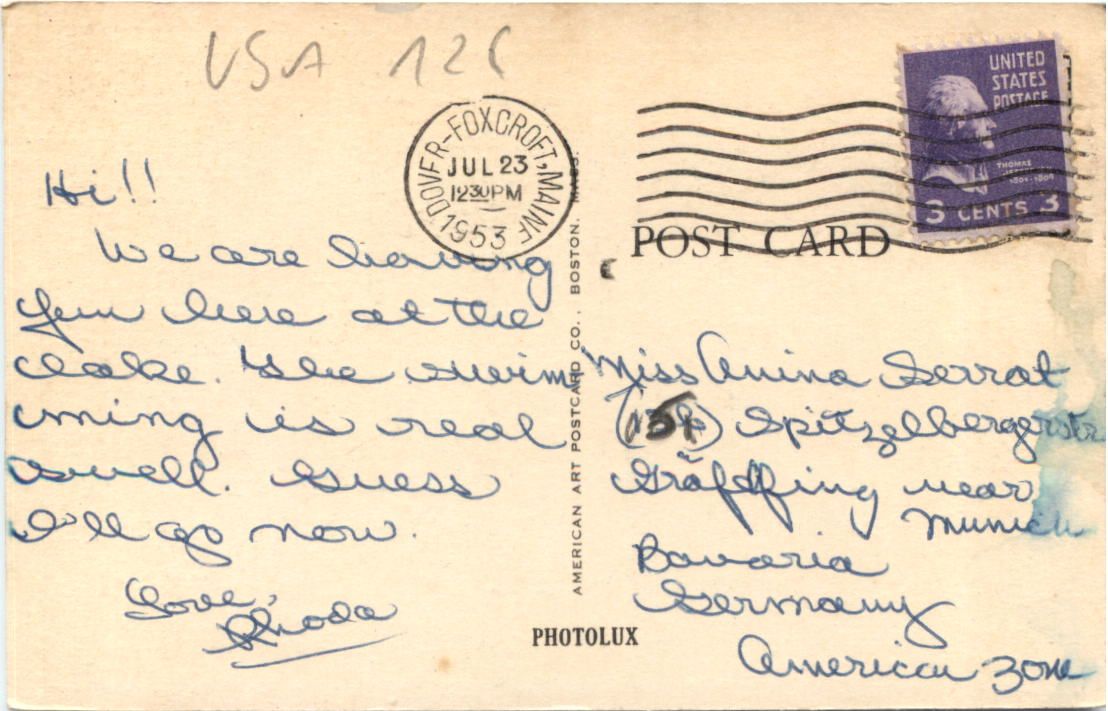 USA 126
DOVER-FOXCROFT, MAINE
JUL 23
12 30 PM
1953
UNITED
STATES
POSTAGE
THOMAS
JEFFERSON
1801-1809
3 CENTS 3
POST CARD
Hi!!
We are having
fun here at the
lake. The swim
ming is real
swell. Guess
I'll go now.
Love,
Rhoda
AMERICAN ART POSTCARD CO., BOSTON, MASS.
PHOTOLUX
Miss Anina Serrat
Spitzelbergerstr
Gräfffing near
Munich
Bavaria
Germany
American zone